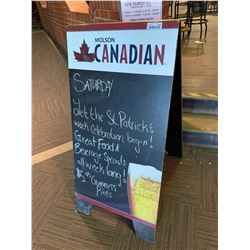 MOLSON
CANADIAN
SATURDAY
Let the St. Patrick's
week Celebration begin!
Great Food &
Beverage Specials
all week long!
Guinness
Pints